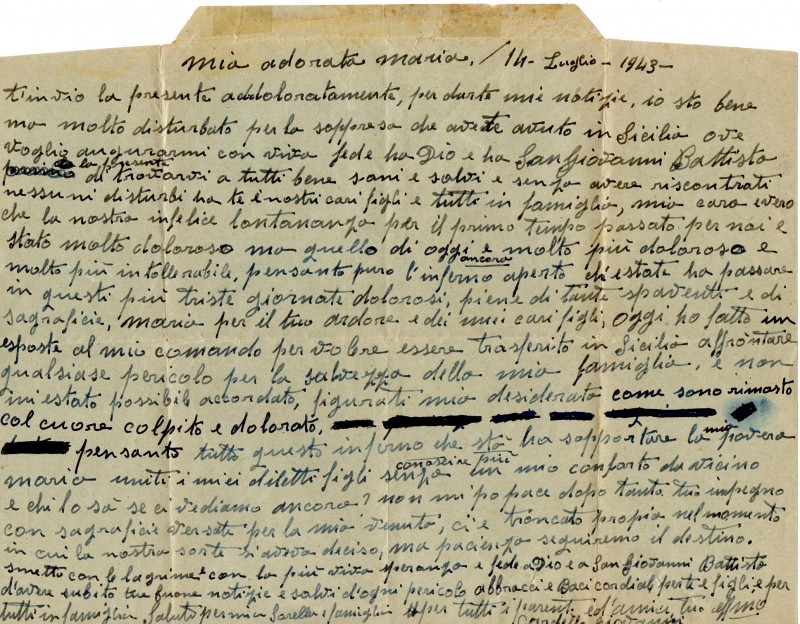 Mia adorata Maria. / 14 - Luglio - 1943 -
t'invio la presente addoloratamente, per darte mie notizie, io sto bene
ma molto disturbato per la soppresa che avete avuto in Sicilia ove
voglio augurarmi con viva fede ha Dio e ha San Giovanni Battista
la presente di trovarvi a tutti bene sani e salvi e senza avere riscontrati
nessuni disturbi ha te i nostri cari figli e tutti in famiglia, mia cara evero
che la nostra infelice lontananza per il primo tempo passato per noi e
stato molto doloroso ma quello di oggi e molto più doloroso e
molto più intollerabile, pensanto puro l'inferno ancora aperto di estate ha passare
in questi più triste giornate dolorosi, piene di tante spaventi e di
sagraficie, Maria per il tuo ardore e dei miei cari figli, oggi ho fatto un
esposte al mio comando per volere essere trasferito in Sicilia affrontare
qualsiase pericolo per la salvezza della mia famiglia, e non
mi estato possibile accordato, figurati mia desiderata come sono rimasto
col cuore colpito e dolorato,
pensanto tutto questo inferno che stà ha sopportare la mia povera
Maria uniti i miei diletti figli senza conoscire più un mio conforto da vicino
e chi lo sà se ci vediamo ancora? non mi po pace dopo tanto tuo impegno
con sagraficie versate per la mia venuta, ci e troncato propia nel momento
in cui la nostra sorte si aveva deciso, ma pacienza seguiremo il destino.
smetto con le lagrime e con la più viva speranza e fede a Dio e a San Giovanni Battista
d'avere subito tue buone notizie e salvi d'ogni pericolo abbracci e Baci cordiali per te e figli e per
tutti in famiglia, Saluto per mia Sorella e famiglia e per tutti i parenti ed amici, tuo affmo
Giovanni